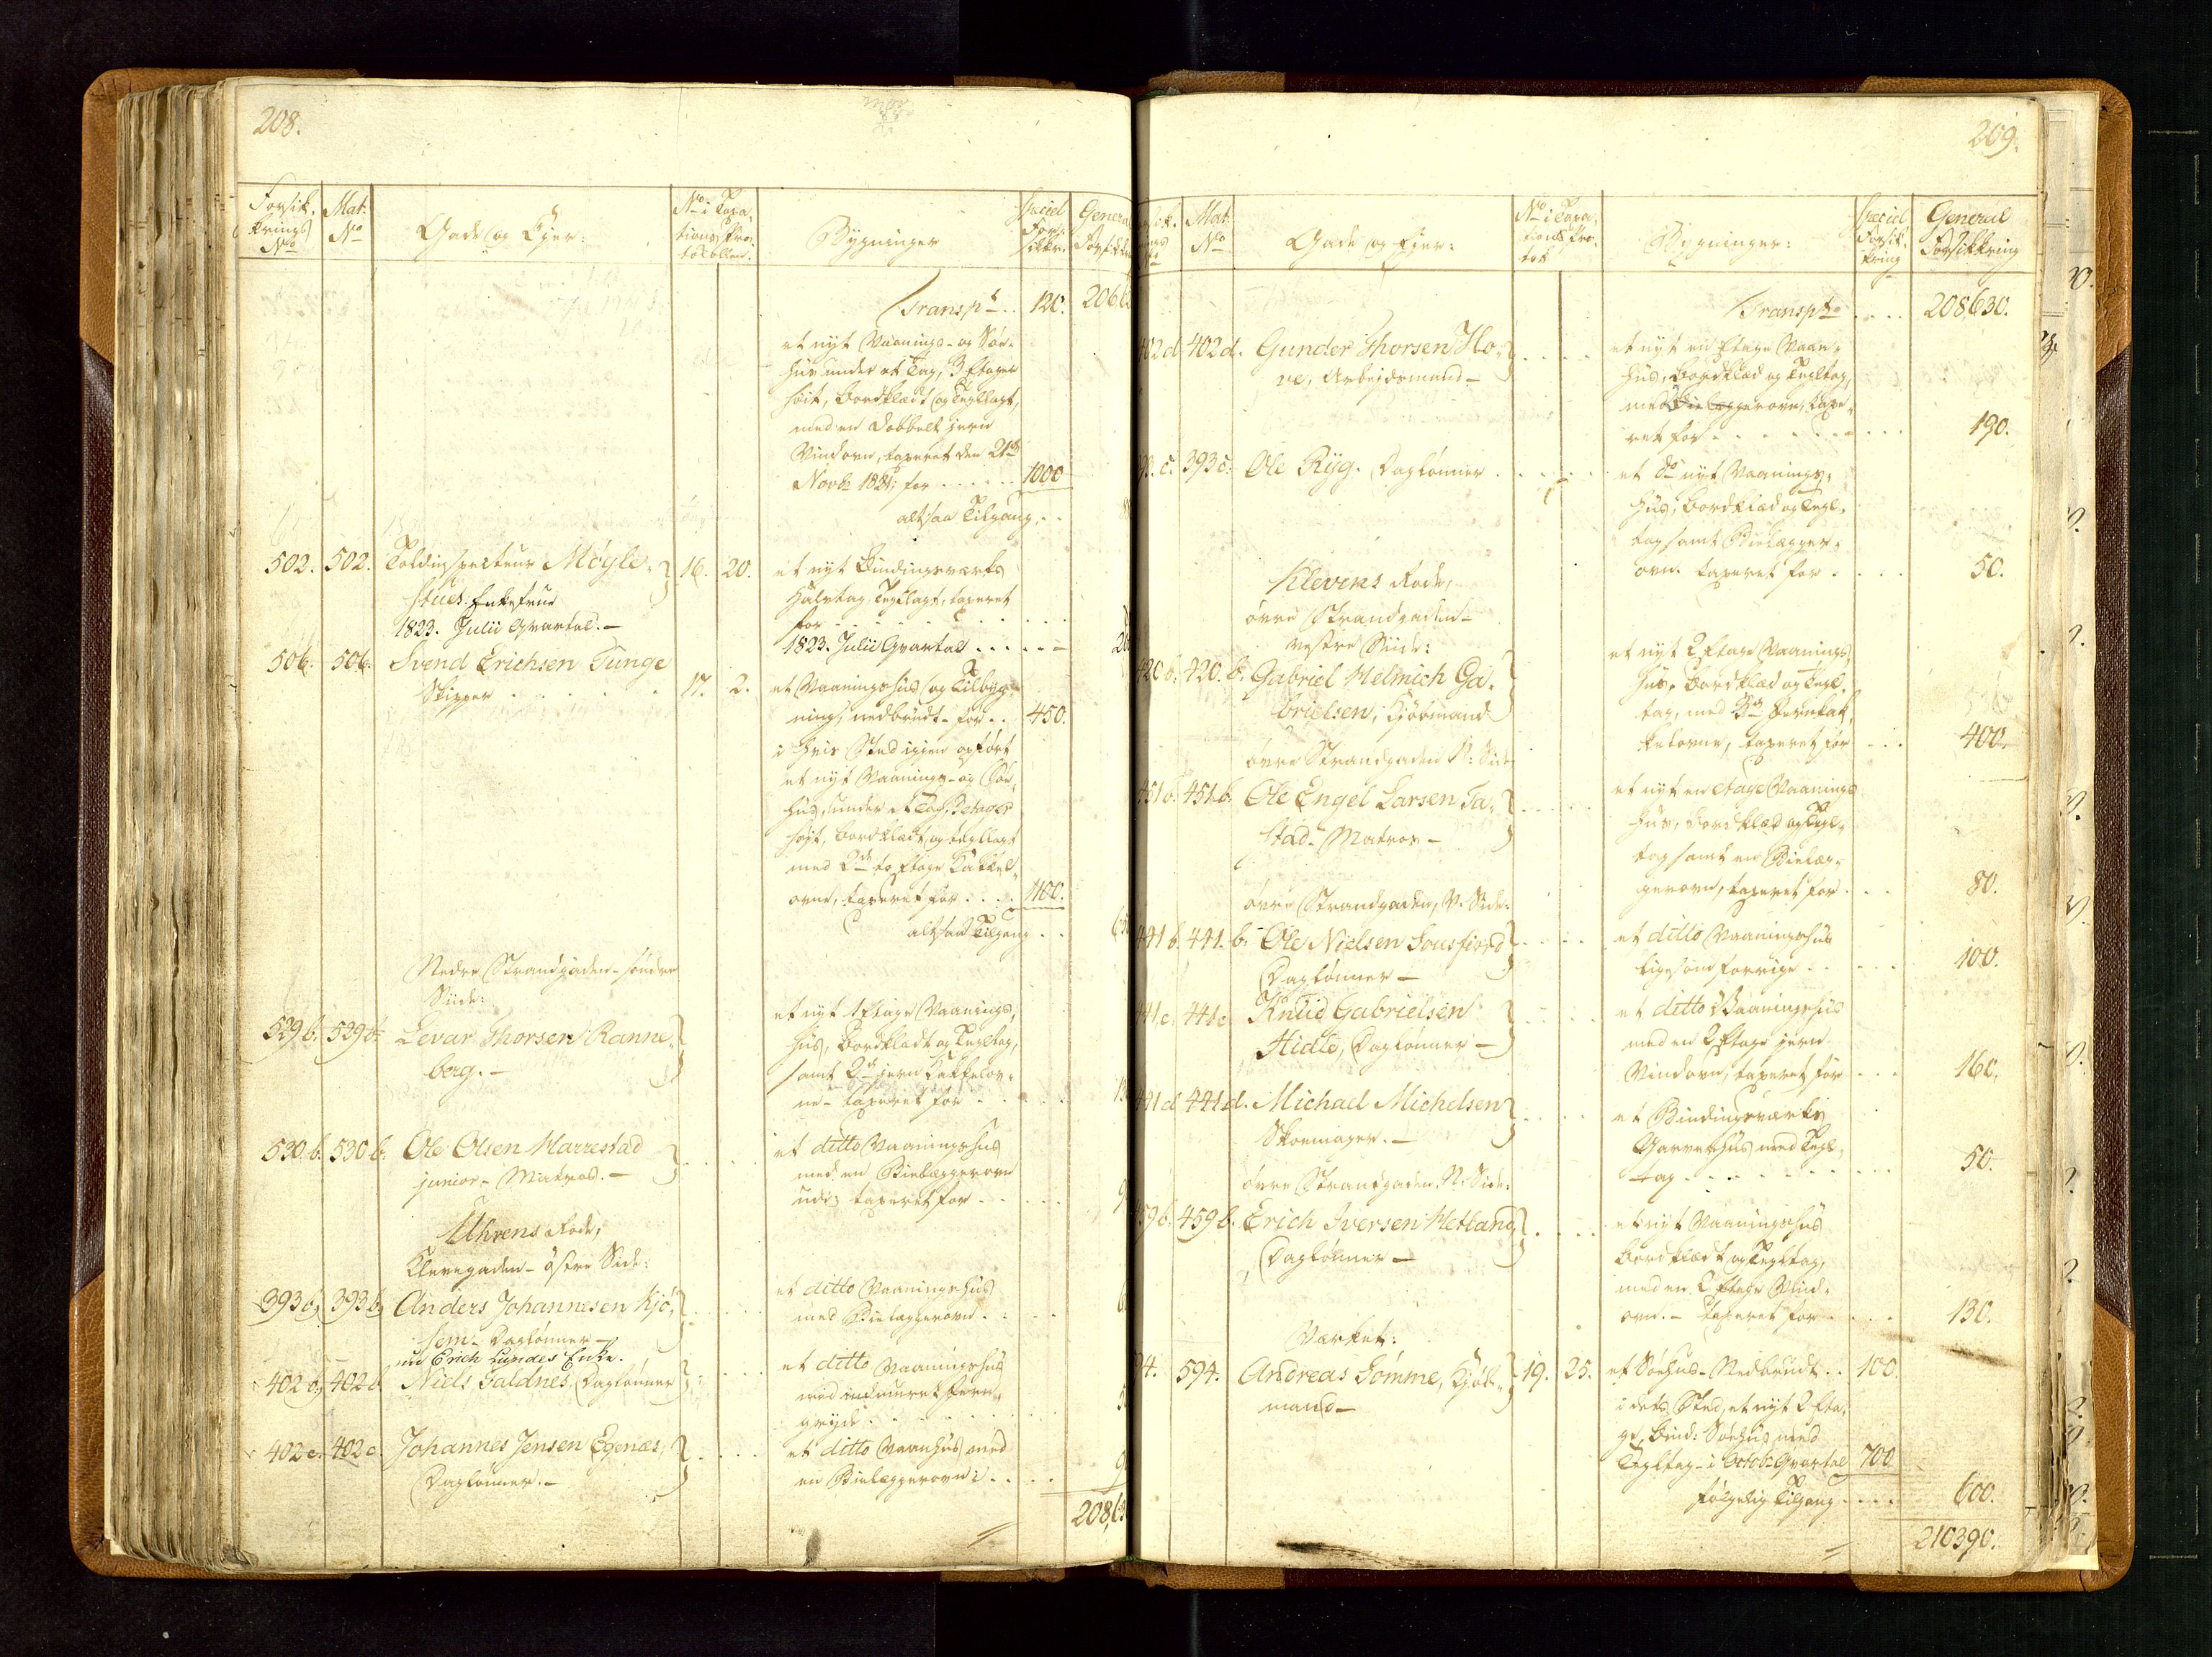 208.
Forsik-
krings
No
Mat:
No
Gade og Ejer:
No i Taxa-
tions Pro-
tocollen.
Bygninger
Special
For-
sikkr:
General
Forsikkr
Transpt .. 120. 206
et nyt Vaanings- og Søe-
huus under et Tag, 3 Etager
høit, bordklædt og Tegllagt,
med en dobbelt jern
Vindovn, taxeret den 21de
Novbr 1821, for . . . . . 1000
altsaa Tilgang . .
502. 502. Toldinspecteur Møgle- 16. 20. et nyt Bindingsværks
stues Enkefrue
Halvtag, Tegllagt, taxeret
for . . . . .
1823. Julii Qvartal.- 1823. Julii Qvartal . . . . .
506. 506. Svend Erichsen Tunge
Skipper . . . . . 17. 2. et Vaaningshus og Tilbyg-
ning, nedbrudt - for . . 450.
i hvis Sted igjen opført
et nyt Vaanings- og Søe-
huus, under et Tag, 3 etager
høyt, bordklædt og tegllagt
med 2de to Etage Kakkel-
ovne, taxeret for . . . . 1100.
altsaa Tilgang . .
Nedre Strandgaden - søndre
Side:
529 b. 529 b. Levar Thorsen Ranne-
berg. -
et nyt 1 Etage Vaanings-
hus, Bordklædt og Tegltag,
samt 2de jern Kakkelov-
ne - taxeret for . . .
530. b. 530 b. Ole Olsen Harrestad
junior - Matros. -
et ditto Vaaningshus
med en Bielæggerovn
udi; taxeret for . . .
Uhrens Rode,
Klevegaden - østre Side:
393 b, 393 b, Anders Johannesen Kjø-
sem - Dagløner -
nu Erich Lundes Enke.
et ditto Vaaningshus
med Bielæggerovn . . .
402 b, 402 b Niels Galdnes, Dagløner
et ditto Vaaningshus
med indmuret Jern-
gryde . . . . .
402 c. 402 c. Johannes Jensen Egenæs,
Dagløner. -
et ditto Vaanhus med
en Bielæggerovn i . . . .
208,63
209.
Mat
No
Gade og Ejer:
No i Taxa-
tions Pro-
tok
Bygninger:
Special
Forsik-
kring
General
Forsikkring
Transpt . . . . 208,630.
402 d 402 d. Gunder Thorsen Ho-
ve, Arbejdsmand -
et nyt en Etage Vaan-
hus, Bordklæd og Tegltag,
med Bielæggerovn, taxe-
ret for . . . . . . 190.
93. c. 393 c. Ole Ryg. Dagløner . . . .
et do nyt Vaanings-
hus, Bordklæd og Tegl-
tag samt Bielægger-
ovn. taxeret for . . . 50.
Klevens Rode,
øvre Strandgaden -
vestre Side:
420 b. 420. b. Gabriel Helmich Ga-
brielsen, Kjøbmand
et nyt 2 Etage Vaanings-
hus, Bordklæd og Tegl-
tag, med 3de Jernkak-
kelovne, taxeret for . . . 400.
øvre Strandgaden N: Side
451 b. 451. b. Ole Engel Larsen Ta-
stad - Matros -
et nyt en etage Vaanings
hus, Bordklæd og Tegl-
tag samt en Bielæg-
gerovn, taxeret for . . . 80.
øvre Strandgaden, V. Side:
441 b. 441. b. Ole Nielsen Sousfiord
Dagløner -
et ditto Vaaningshus
ligesom forrige . . . . . 100.
441. c. 441 c. Knud Gabrielsen
Hidle, Dagløner -
et ditto Vaaningshus
med en 2 Etage jern
Vindovn, taxeret for . . . 160.
441 d 441. d. Michael Michelsen
Skomager. -
et Bindingsværks
Garverhus med Tegl-
tag . . . . . 50.
øvre Strandgaden N: Side:
459 b. 459 b. Erich Iversen Hetland
Dagløner -
et nyt Vaaningshus
Bordklædt og Tegltag,
med en 2 Etage Vind-
ovn. - taxeret for . . . . 130.
Værket:
94. 594. Andreas Gømme, Kjøb-
mand - 19. 25. et Søehus - Nedbrudt . . 100.
i dets Sted, et nyt 2 Eta-
ge, Bind: Søehus med
Tegltag - i Octobr Qvartal 700
følgelig Tilgang . . . . 600.
210390.